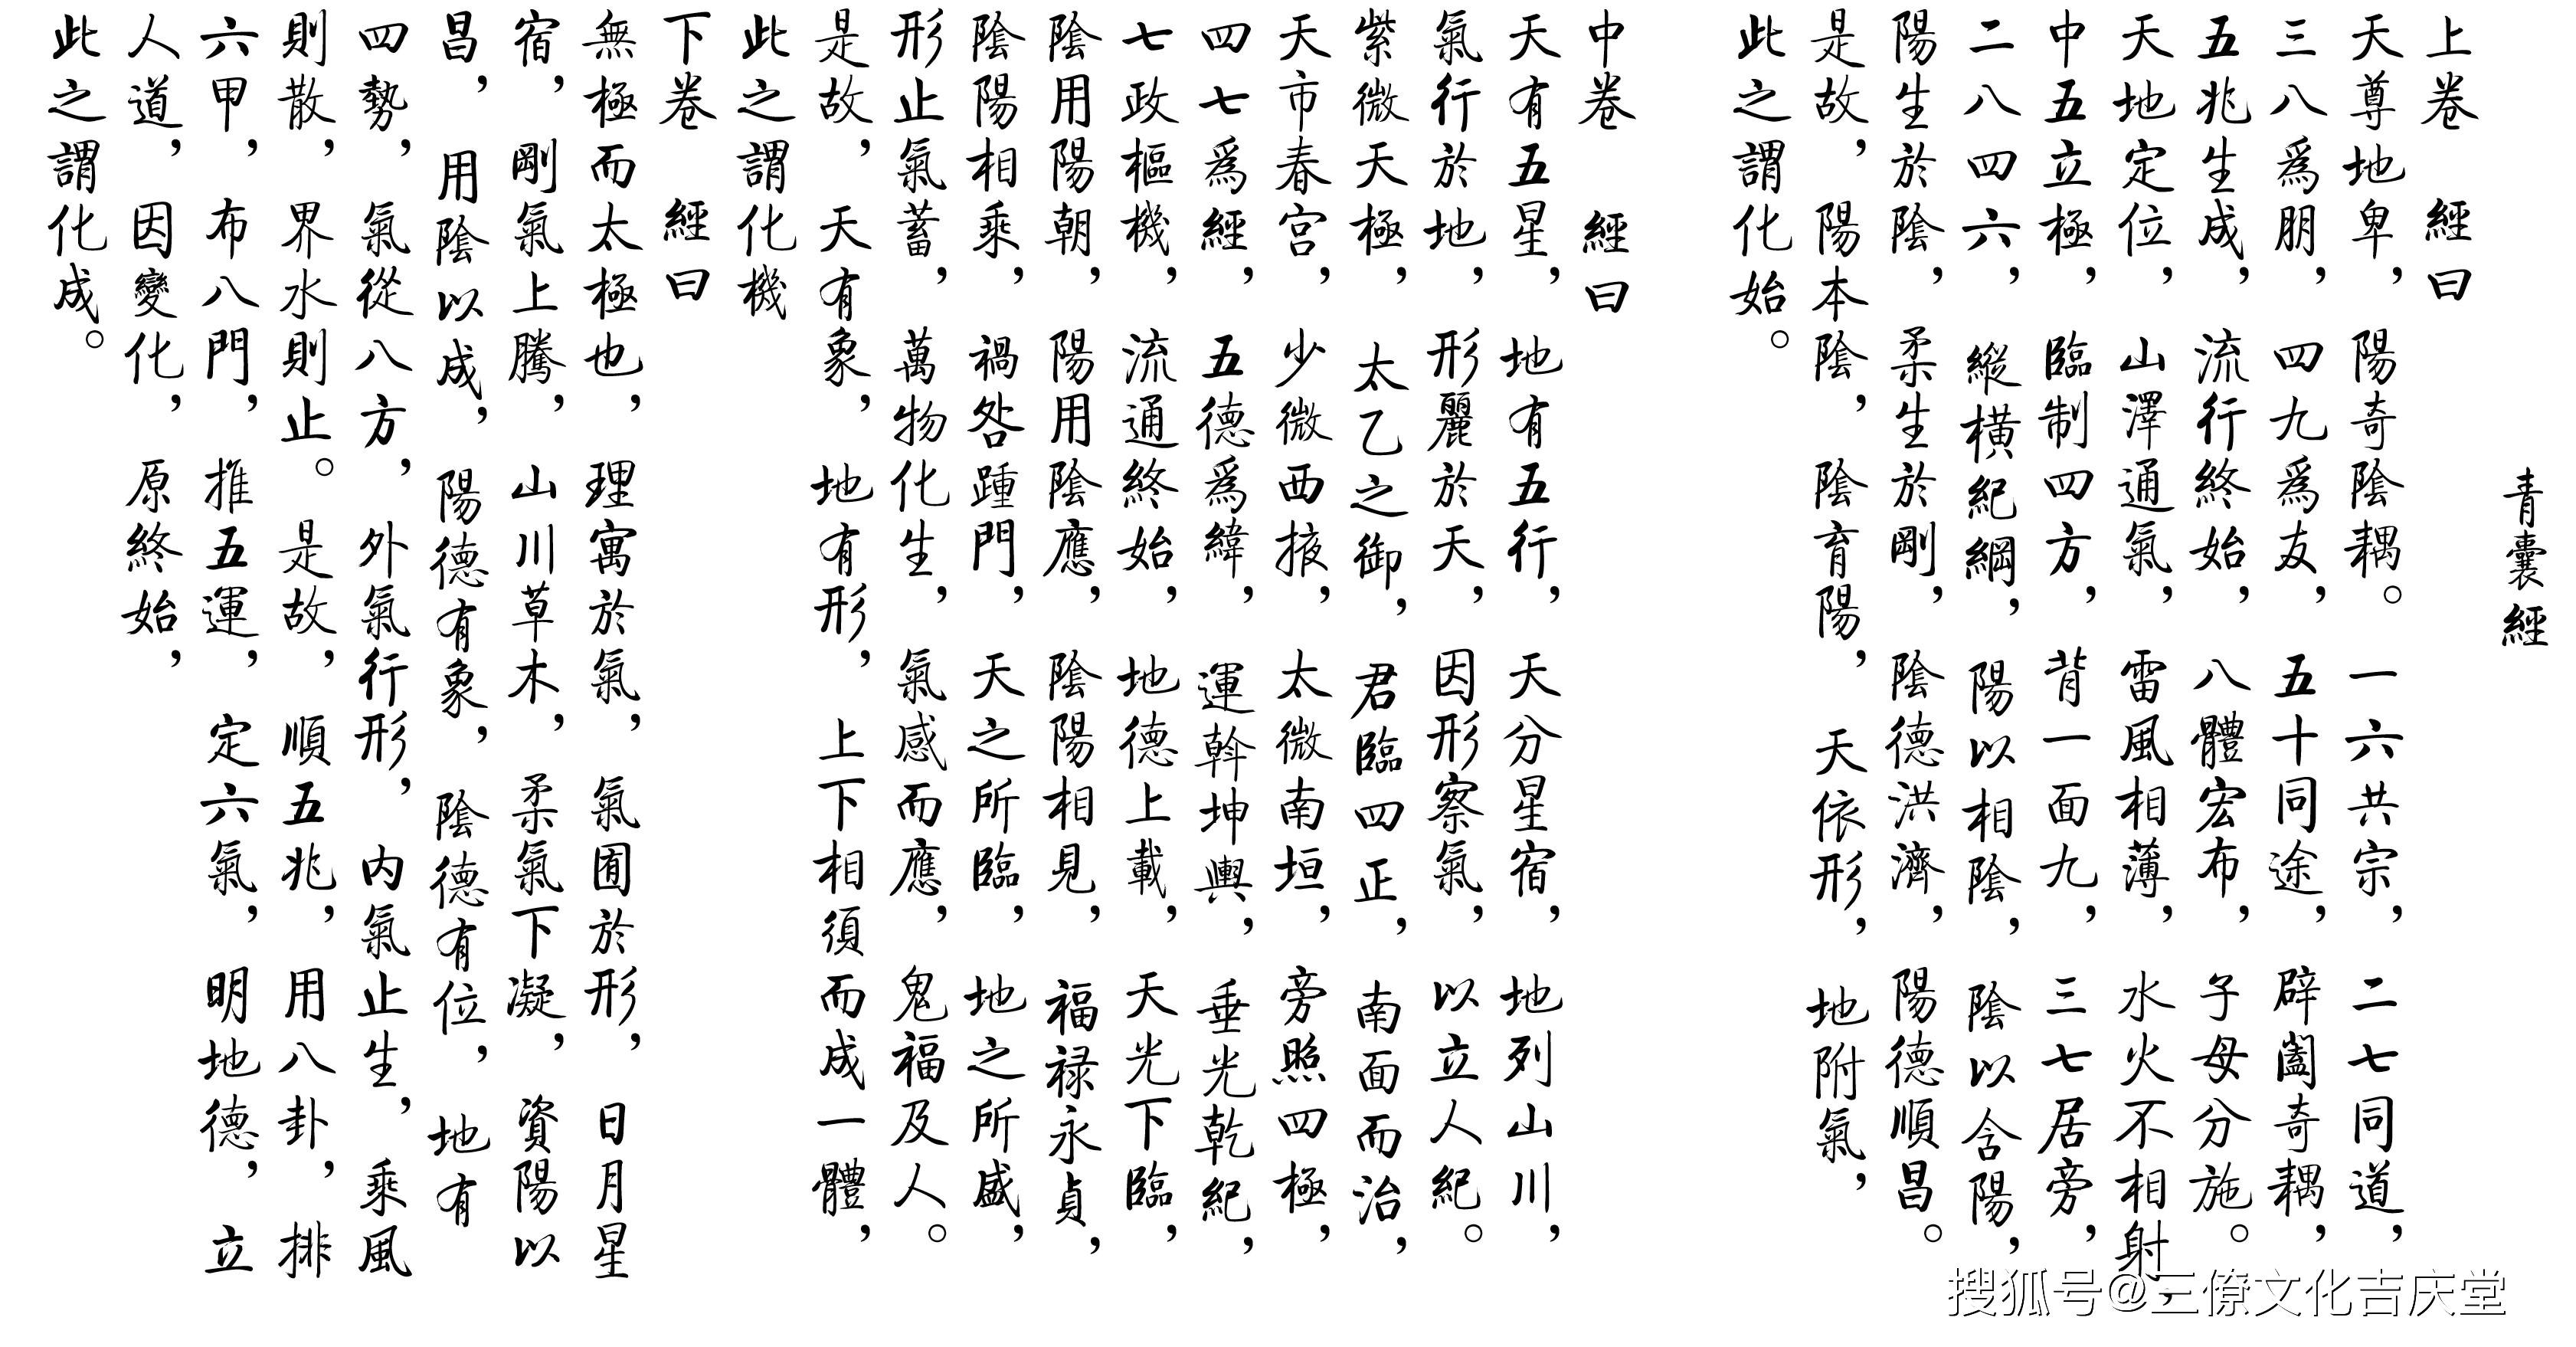 青囊經
上卷　經曰
天尊地卑，陽奇陰耦。一六共宗，二七同道，
三八爲朋，四九爲友，五十同途，辟闔奇耦，
五兆生成，流行終始，八體宏布，子母分施。
天地定位，山澤通氣，雷風相薄，水火不相射，
中五立極，臨制四方，背一面九，三七居旁，
二八四六，縱橫紀綱，陽以相陰，陰以含陽，
陽生於陰，柔生於剛，陰德洪濟，陽德順昌。
是故，陽本陰，陰育陽，天依形，地附氣，
此之謂化始。
中卷　經曰
天有五星，地有五行，天分星宿，地列山川，
氣行於地，形麗於天，因形察氣，以立人紀。
紫微天極，太乙之御，君臨四正，南面而治，
天市春宫，少微西掖，太微南垣，旁照四極，
四七爲經，五德爲緯，運斡坤輿，垂光乾紀，
七政樞機，流通終始，地德上載，天光下臨，
陰用陽朝，陽用陰應，陰陽相見，福禄永貞，
陰陽相乘，禍咎踵門，天之所臨，地之所盛，
形止氣蓄，萬物化生，氣感而應，鬼福及人。
是故，天有象，地有形，上下相須而成一體，
此之謂化機
下卷　經曰
無極而太極也，理寓於氣，氣囿於形，日月星
宿，剛氣上騰，山川草木，柔氣下凝，資陽以
昌，用陰以成，陽德有象，陰德有位，地有
四勢，氣從八方，外氣行形，内氣止生，乘風
則散，界水則止。是故，順五兆，用八卦，排
六甲，布八門，推五運，定六氣，明地德，立
人道，因變化，原終始，
此之謂化成。
搜狐号@三僚文化吉庆堂